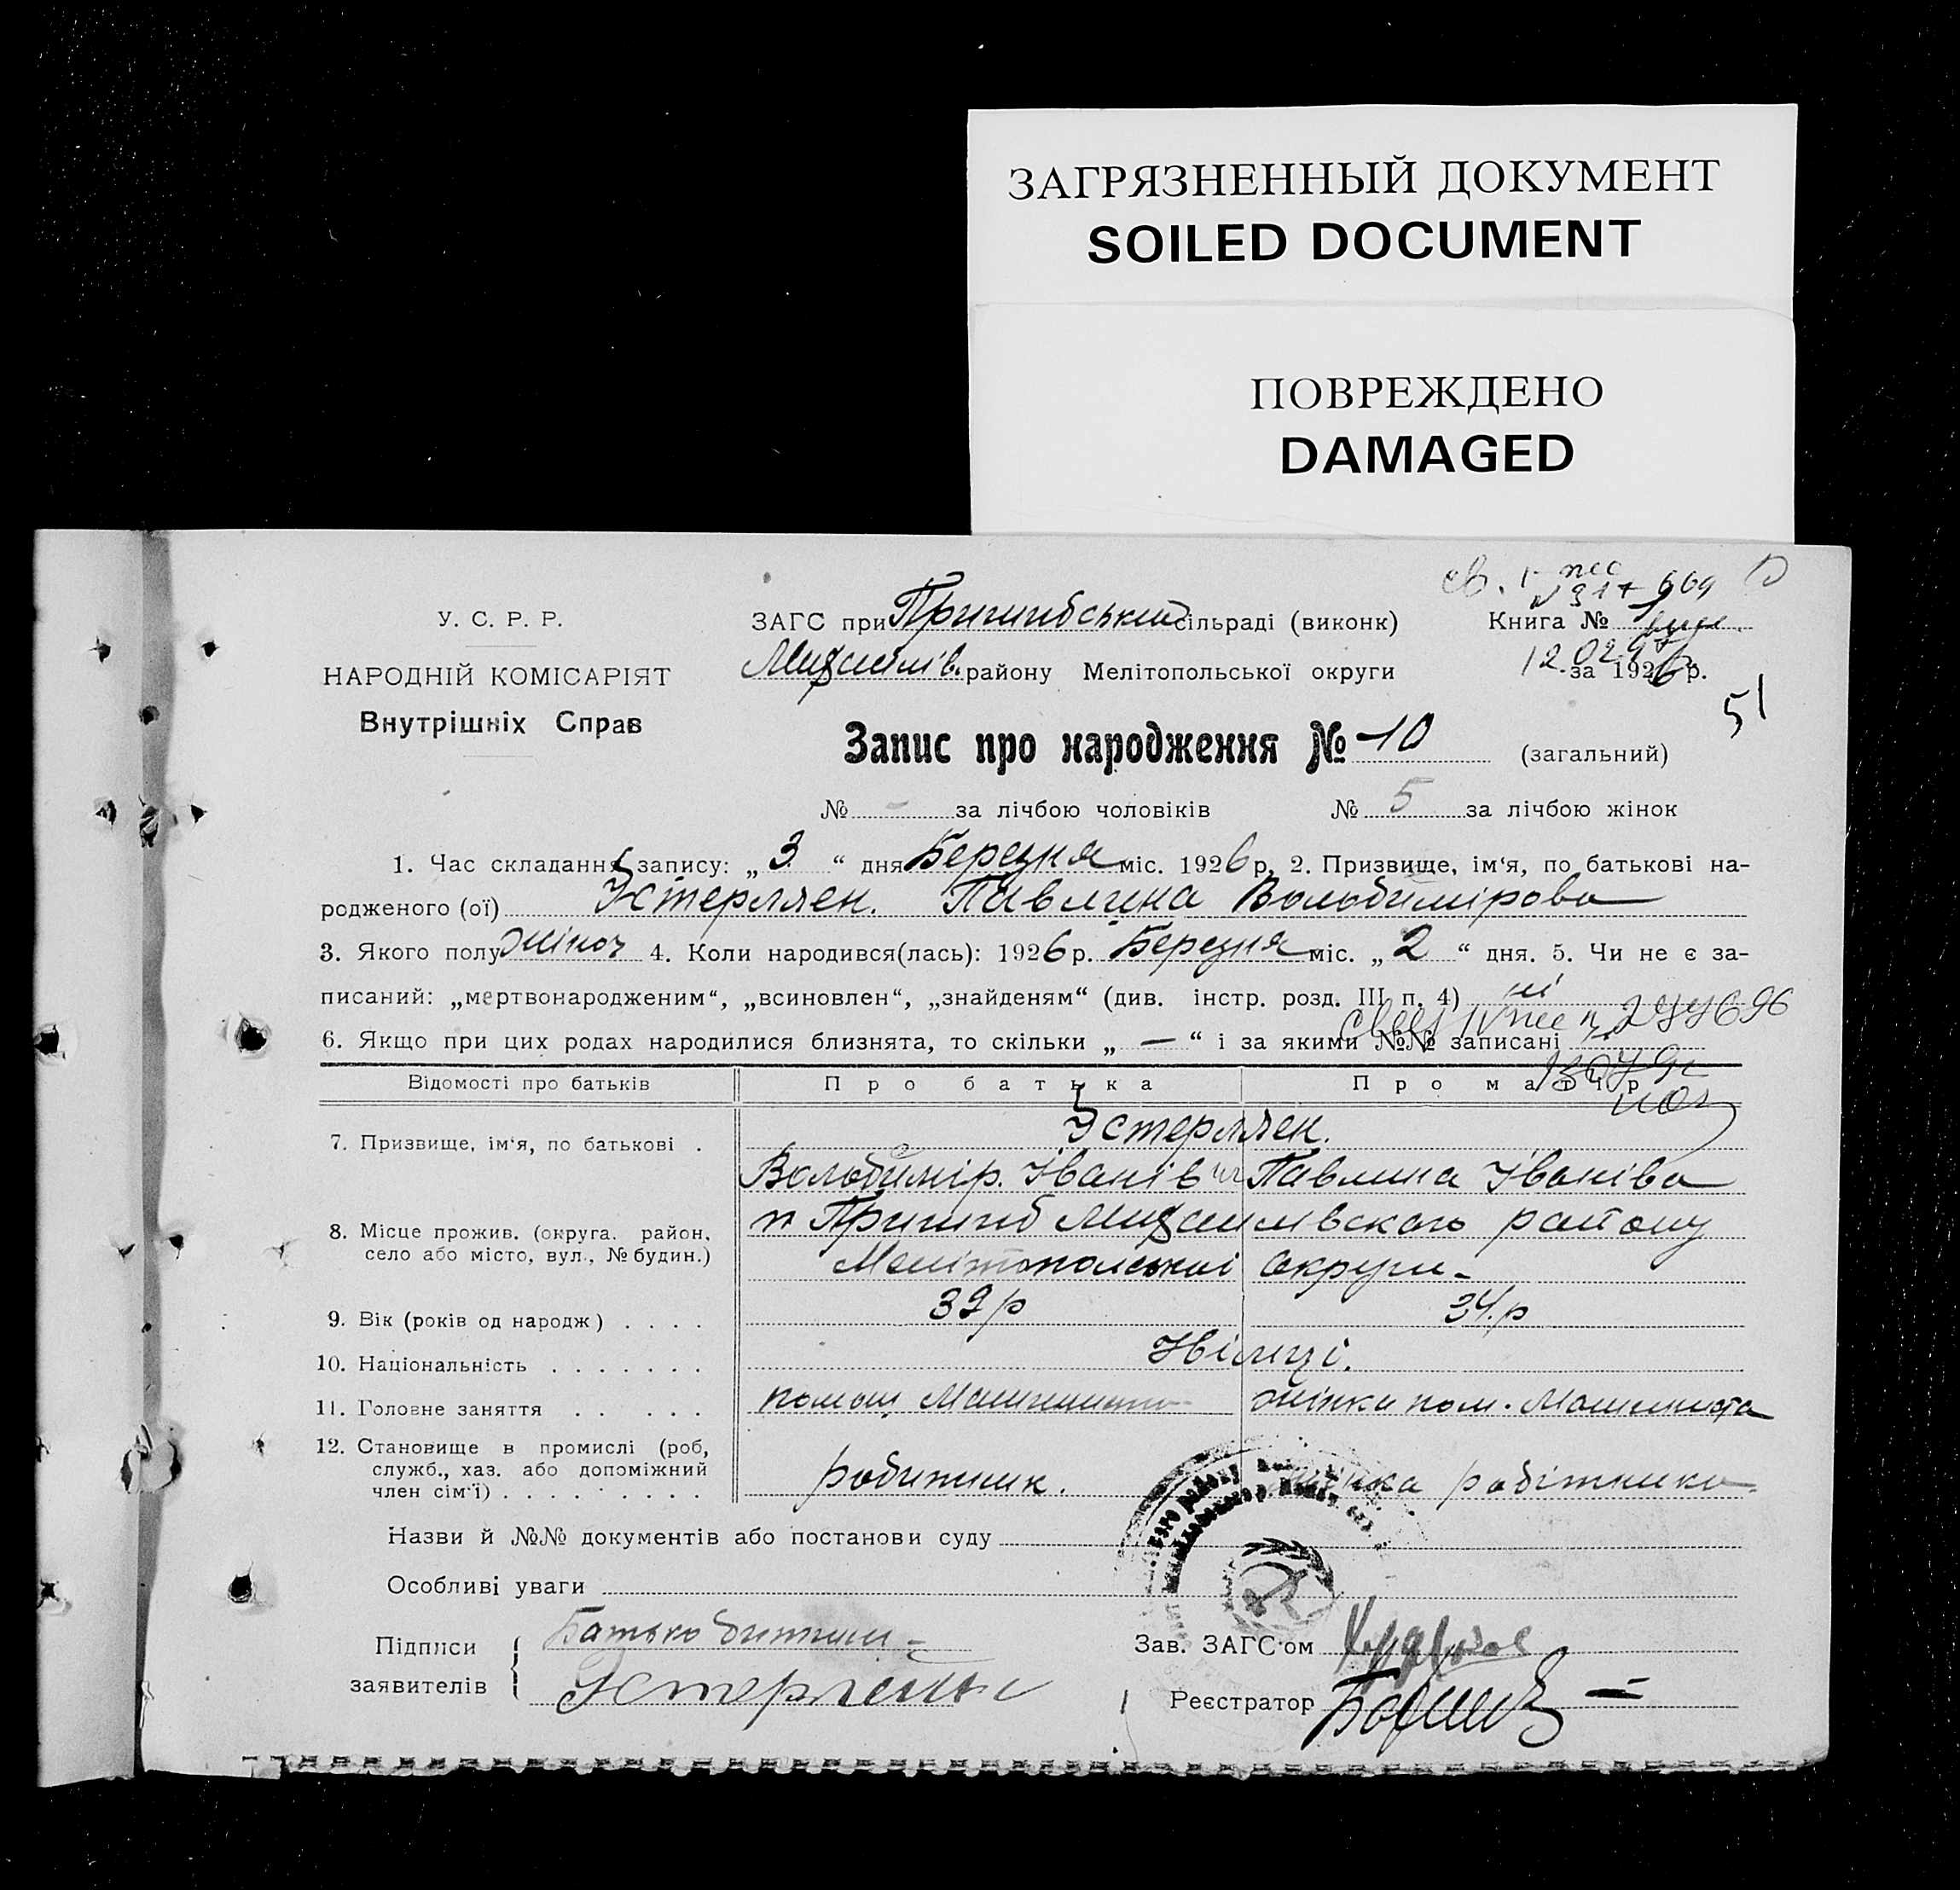 ЗАГРЯЗНЕННЫЙ ДОКУМЕНТ
SOILED DOCUMENT
ПОВРЕЖДЕНО
DAMAGED
У. С. Р. Р.
НАРОДНІЙ КОМІСАРІЯТ
Внутрішніх Справ
ЗАГС при Пришибській сільраді (виконк)
Книга №
Михайлів. району Мелітопольської округи
за 1926 р.
51
Запис про народження № 10 (загальний)
№ - за лічбою чоловіків № 5 за лічбою жінок
1. Час складання запису: „ 3 “ дня Березня міс. 1926 р. 2. Призвище, ім‘я, по батькові на-
родженого (ої) Эстерляен. Павлина Володимірова
3. Якого полу жіноч 4. Коли народився(лась): 1926 р. Березня міс. „ 2 “ дня. 5. Чи не є за-
писаний: „мертвонародженим“, „всиновлен“, „знайденям“ (див. інстр. розд. III п. 4) ні
6. Якщо при цих родах народилися близнята, то скільки „ — “ і за якими №№ записані
Відомості про батьків Про батька Про матір
7. Призвище, ім‘я, по батькові . Эстерляен.
Володимір. Іванів Павлина Іваніва
8. Місце прожив. (округа. район, село або місто, вул., № будин.) п. Пришиб Михайлівского району
Мелітопольської округи -
9. Вік (років од народж) . . . . 39 р 34. р
10. Національність . . . . . . . Німці.
11. Головне заняття . . . . . помощ Машиниста жінка пом. Машиниста
12. Становище в промислі (роб, служб., хаз. або допоміжний член сім‘ї) . . . . . . . . . робитник. жінка робітника
Назви й №№ документів або постанови суду
Особливі уваги
Підписи заявителів Батько дитини -
Зав. ЗАГС‘ом
Реєстратор